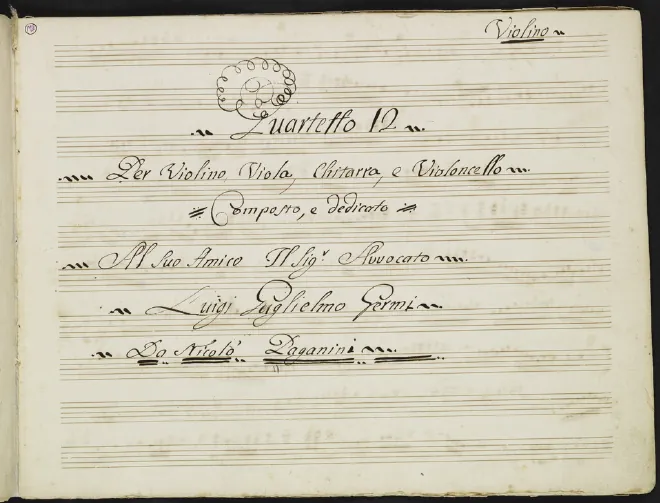 Violino
Quartetto 12
Per Violino Viola, Chitarra, e Violoncello
Composto, e dedicato
Al Suo Amico Il Sigr Avvocato
Luigi Guglielmo Germi
Da Nicolò Paganini